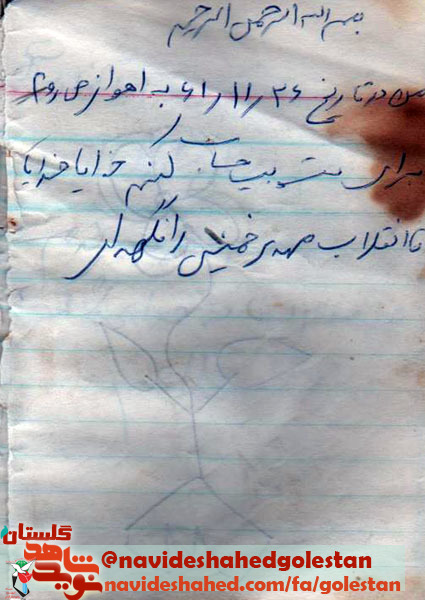 بسم الله الرحمن الرحیم
من در تاریخ ۲۶ ر ۱۱ ر ۶۱ به اهواز می روم
برای کنم خدایا خدایا
تا انقلاب مهدی خمینی را نگهدار
گلستان
نوید شاهد
@navideshahedgolestan
navideshahed.com/fa/golestan